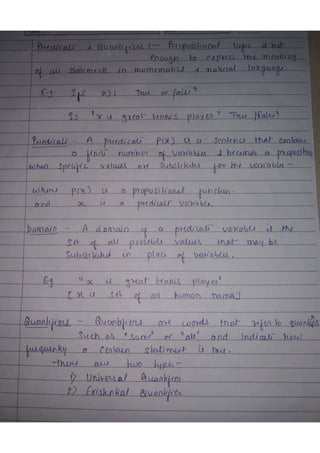 Predicate & Quantifiers :- Propositional logic is not
enough to express the meaning
of all statement in mathematics & natural language.
Eg: Is x > 1 True or false"
Is "x is great tennis player" True / false?
Predicate - A predicate P(x) is a sentence that contains
a finite number of variables & becomes a proposition
when specific values are substitute for the variable -
where p(x) is a propositional function
and x is a predicate variable.
Domain - A domain of a predicate variable is the
Set of all possible values that may be
Substituted in place of variables.
Eg "x is great tennis player"
[x is set of all human names]
Quantifiers - Quantifiers are words that refer to quantities
Such as "some" or "all" and Indicate how
frequently a certain statement is true.
-There are two types-
1) Universal Quantifier
2) Existential Quantifier